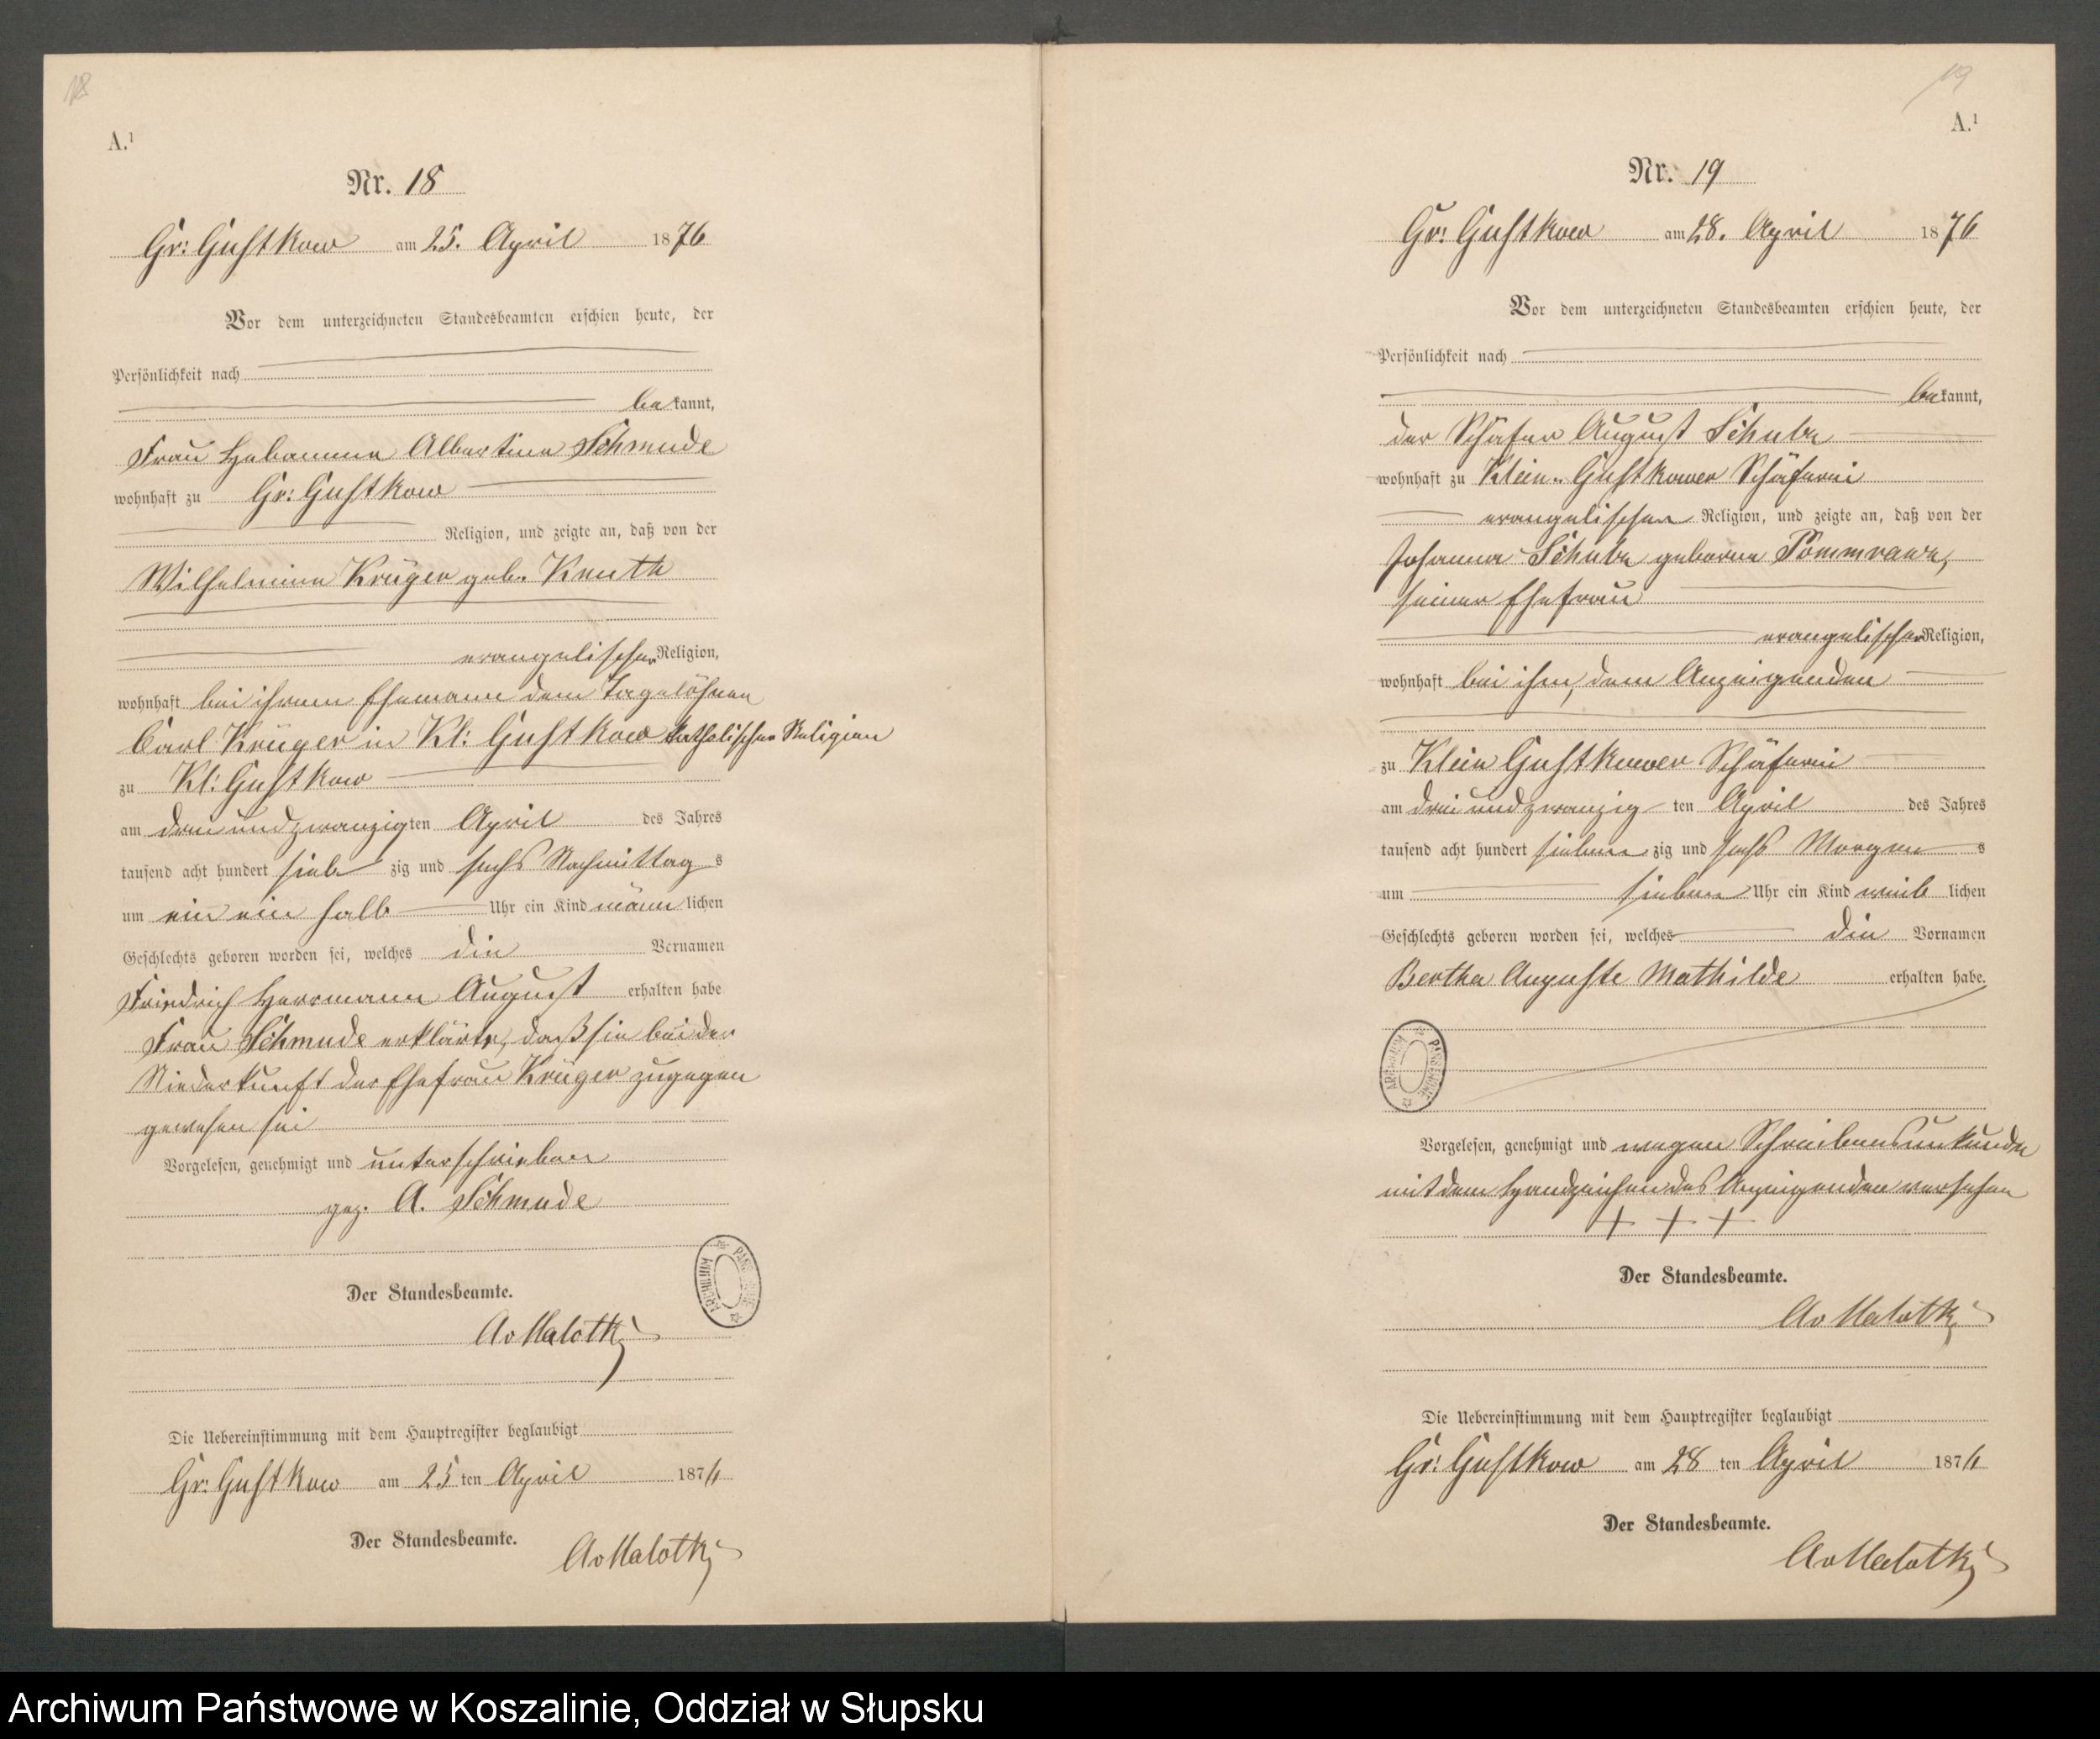 18
A.¹
Nr. 18
Gr: Gustkow am 25. April 1876
Vor dem unterzeichneten Standesbeamten erschien heute, der
Persönlichkeit nach
bekannt,
Frau Hebamme Albertine Schmude
wohnhaft zu Gr: Gustkow
Religion, und zeigte an, daß von der
Wilhelmine Krüger geb. Knuth
evangelischer Religion,
wohnhaft bei ihrem Ehemann dem Tagelöhner
Carl Krüger in Kl: Gustkow katholischer Religion
zu Kl: Gustkow
am drei und zwanzigten April des Jahres
tausend acht hundert siebzig und sechs Nachmittags
um ein ein halb Uhr ein Kind männlichen
Geschlechts geboren worden sei, welches die Vornamen
Friedrich Herrmann August erhalten habe
Frau Schmude erklärte, daß sie bei der
Niederkunft der Ehefrau Krüger zugegen
gewesen sei
Vorgelesen, genehmigt und unterschrieben
gez. A. Schmude
Der Standesbeamte.
AvMalotki
Die Uebereinstimmung mit dem Hauptregister beglaubigt
Gr: Gustkow am 25 ten April 1876
Der Standesbeamte.
AvMalotki
19
A.¹
Nr. 19
Gr: Gustkow am 28. April 1876
Vor dem unterzeichneten Standesbeamten erschien heute, der
Persönlichkeit nach
bekannt,
der Schäfer August Schulz
wohnhaft zu Klein-Gustkower Schäferei
evangelischer Religion, und zeigte an, daß von der
Johanna Schulz geborne Pommrenz,
seiner Ehefrau
evangelischer Religion,
wohnhaft bei ihm, dem Anzeigenden
zu Klein Gustkower Schäferei
am drei und zwanzig ten April des Jahres
tausend acht hundert siebenzig und sechs Morgens
um sieben Uhr ein Kind weiblichen
Geschlechts geboren worden sei, welches die Vornamen
Bertha Auguste Mathilde erhalten habe.
Vorgelesen, genehmigt und wegen Schreibensunkunde
mit dem Handzeichen des Anzeigenden versehen
+ + +
Der Standesbeamte.
AvMalotki
Die Uebereinstimmung mit dem Hauptregister beglaubigt
Gr: Gustkow am 28 ten April 1876
Der Standesbeamte.
AvMalotki
Archiwum Państwowe w Koszalinie, Oddział w Słupsku